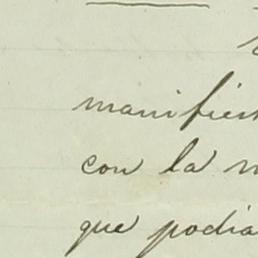 manifiest
con la
que podia